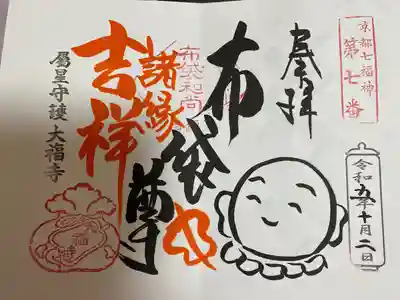 京都七福神
第七番
奉拝
令和九年十月二日
布袋尊
布袋和尚
諸縁
吉祥
属星守護 大福寺